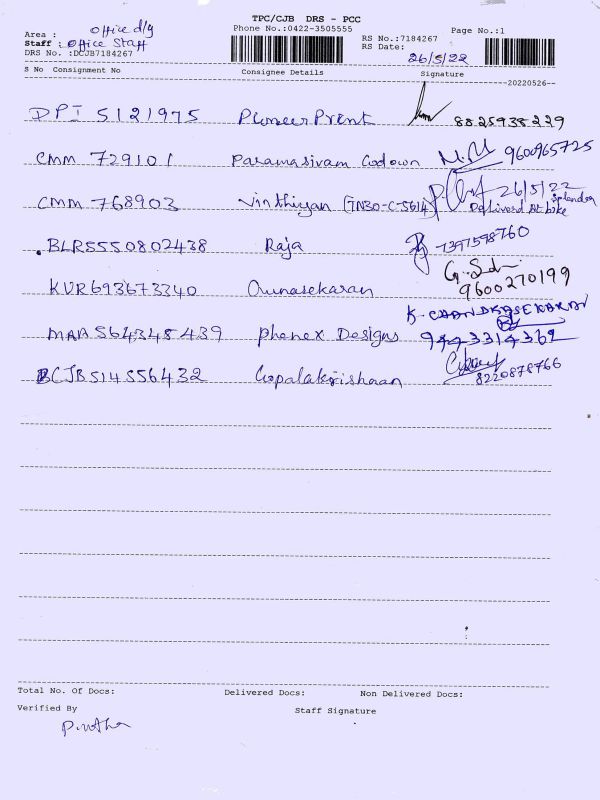 TPC/CJB DRS - PCC
Area : office dly Phone No.:0422-3505555 RS No.:7184267 Page No.:1
Staff : office Staff RS Date: 26/5/22
DRS No. :DCJB7184267
S No Consignment No Consignee Details Signature
20220526--
DPI 5121975 Pioneer Print 8825938229
CMM 729101 Paramasivam Godown 9600965725
CMM 768903 (TN30-C-5614) 26/5/22 Splendor
Deliverd At bike
BLR5550802438 Raja 7397598760
KUR693673340 Gunasekaran 9600270199
K. CHANDRASEKARAN
MAA564348439 phenex Designs 9443314362
BCJB514556432 Gopalakrishnan 8220878766
Total No. Of Docs: Delivered Docs: Non Delivered Docs:
Verified By Staff Signature